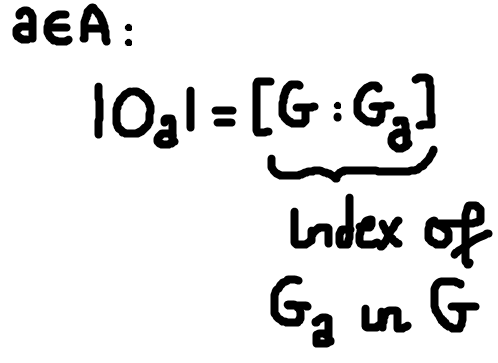 a∈A:
|Oₐ| = [G : Gₐ]
Index of
Gₐ in G